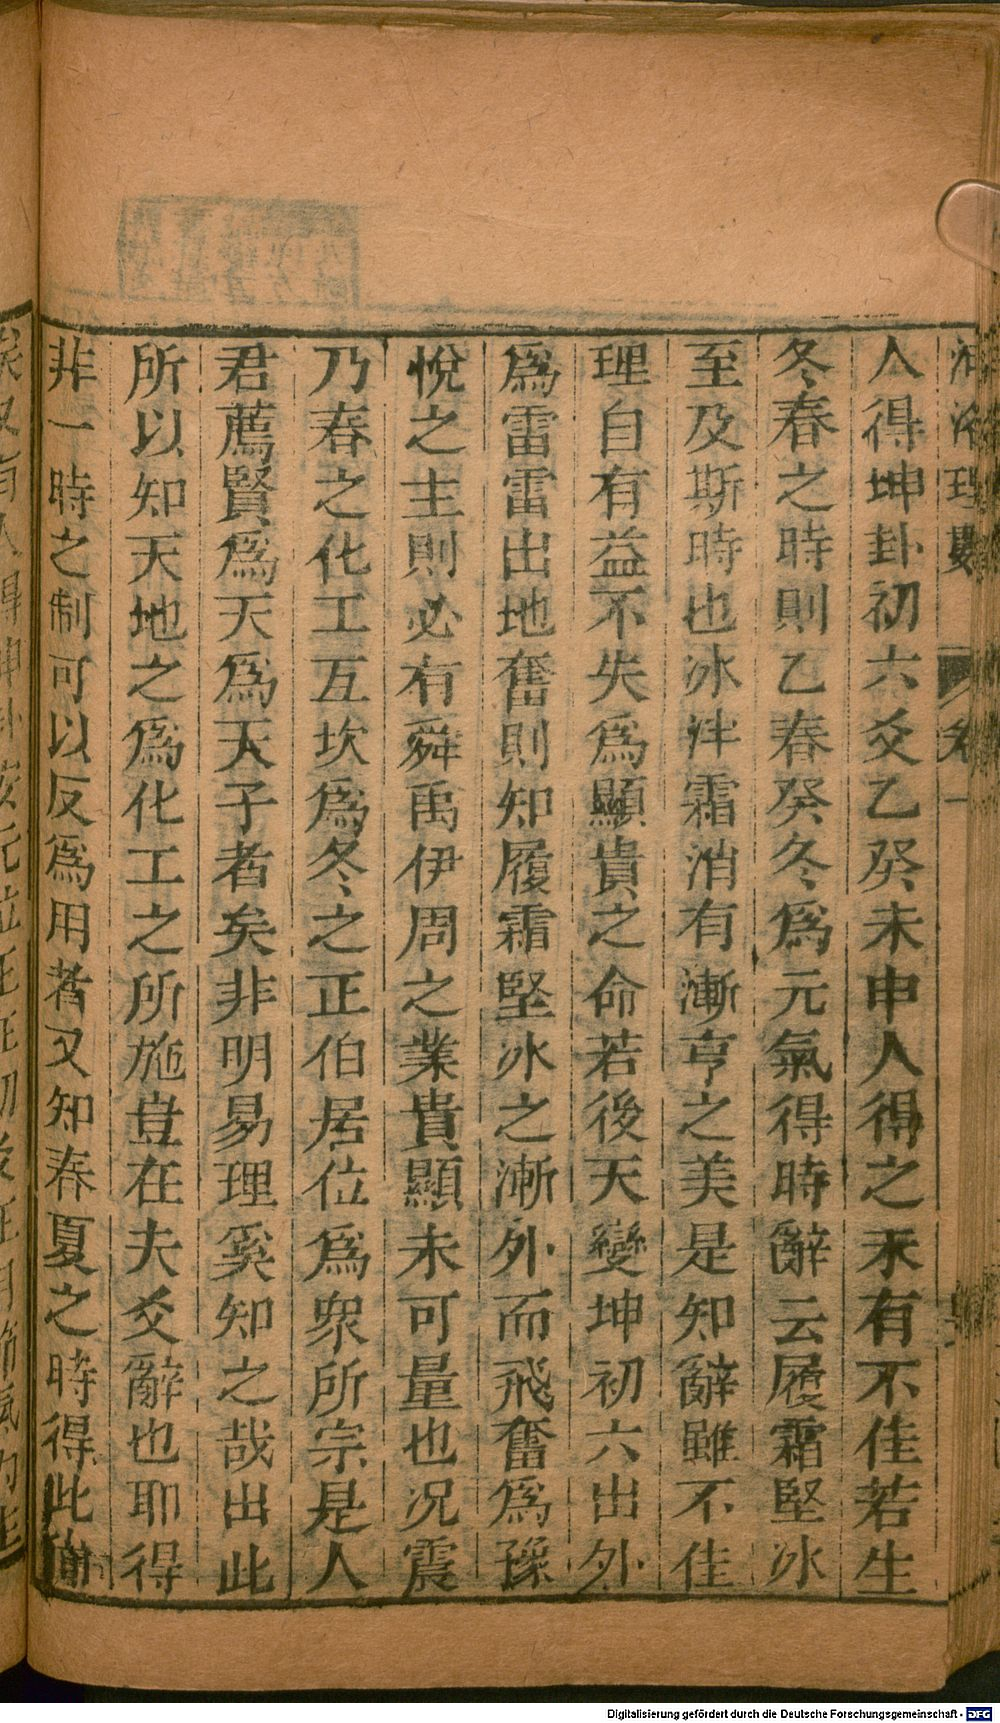 河洛理數 卷一
人得坤卦初六爻乙癸未申人得之未有不佳若生
冬春之時則乙春癸冬爲元氣得時辭云履霜堅冰
至及斯時也冰泮霜消有漸亨之美是知辭雖不佳
理自有益不失爲顯貴之命若後天變坤初六出外
爲雷雷出地奮則知履霜堅冰之漸外而飛奮爲豫
悅之主則必有舜禹伊周之業貴顯未可量也况震
乃春之化工互坎爲冬之正伯居位爲衆所宗是人
君薦賢爲天爲天子者矣非明易理奚知之哉出此
所以知天地之爲化工之所施豈在夫爻辭也耶得
非一時之制可以反爲用者又知春夏之時得此
Digitalisierung gefördert durch die Deutsche Forschungsgemeinschaft - DFG